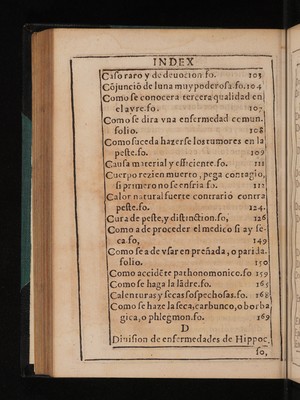 INDEX
Caso raro y de deuocion fo. 103
Cõjunciõ de luna muy poderosa.fo.104
Como se conocera tercera qualidad en
el ayre.fo. 107
Como se dira vna enfermedad comun.
folio. 108
Como suceda hazerse los tumores en la
peste.fo. 109
Causa material y efficiente.fo. 111
Cuerpo rezien muerto, pega contagio,
si primero no se enfria fo. 112
Calor natural fuerte contrario contra
peste.fo. 124.
Cura de peste, y distinction.fo, 126
Como a de proceder el medico si ay se-
ca.fo, 149
Como se a de vsar en preñada, o parida.
folio. 150
Como accidẽte pathonomonico.fo 159
Como se haga la lãdre.fo. 165
Calenturas y secas sospechosas.fo. 168
Como se haze la seca, carbunco, o borba
gica, o phlegmon.fo. 169
D
Diuision de enfermedades de Hippoc.
fo,